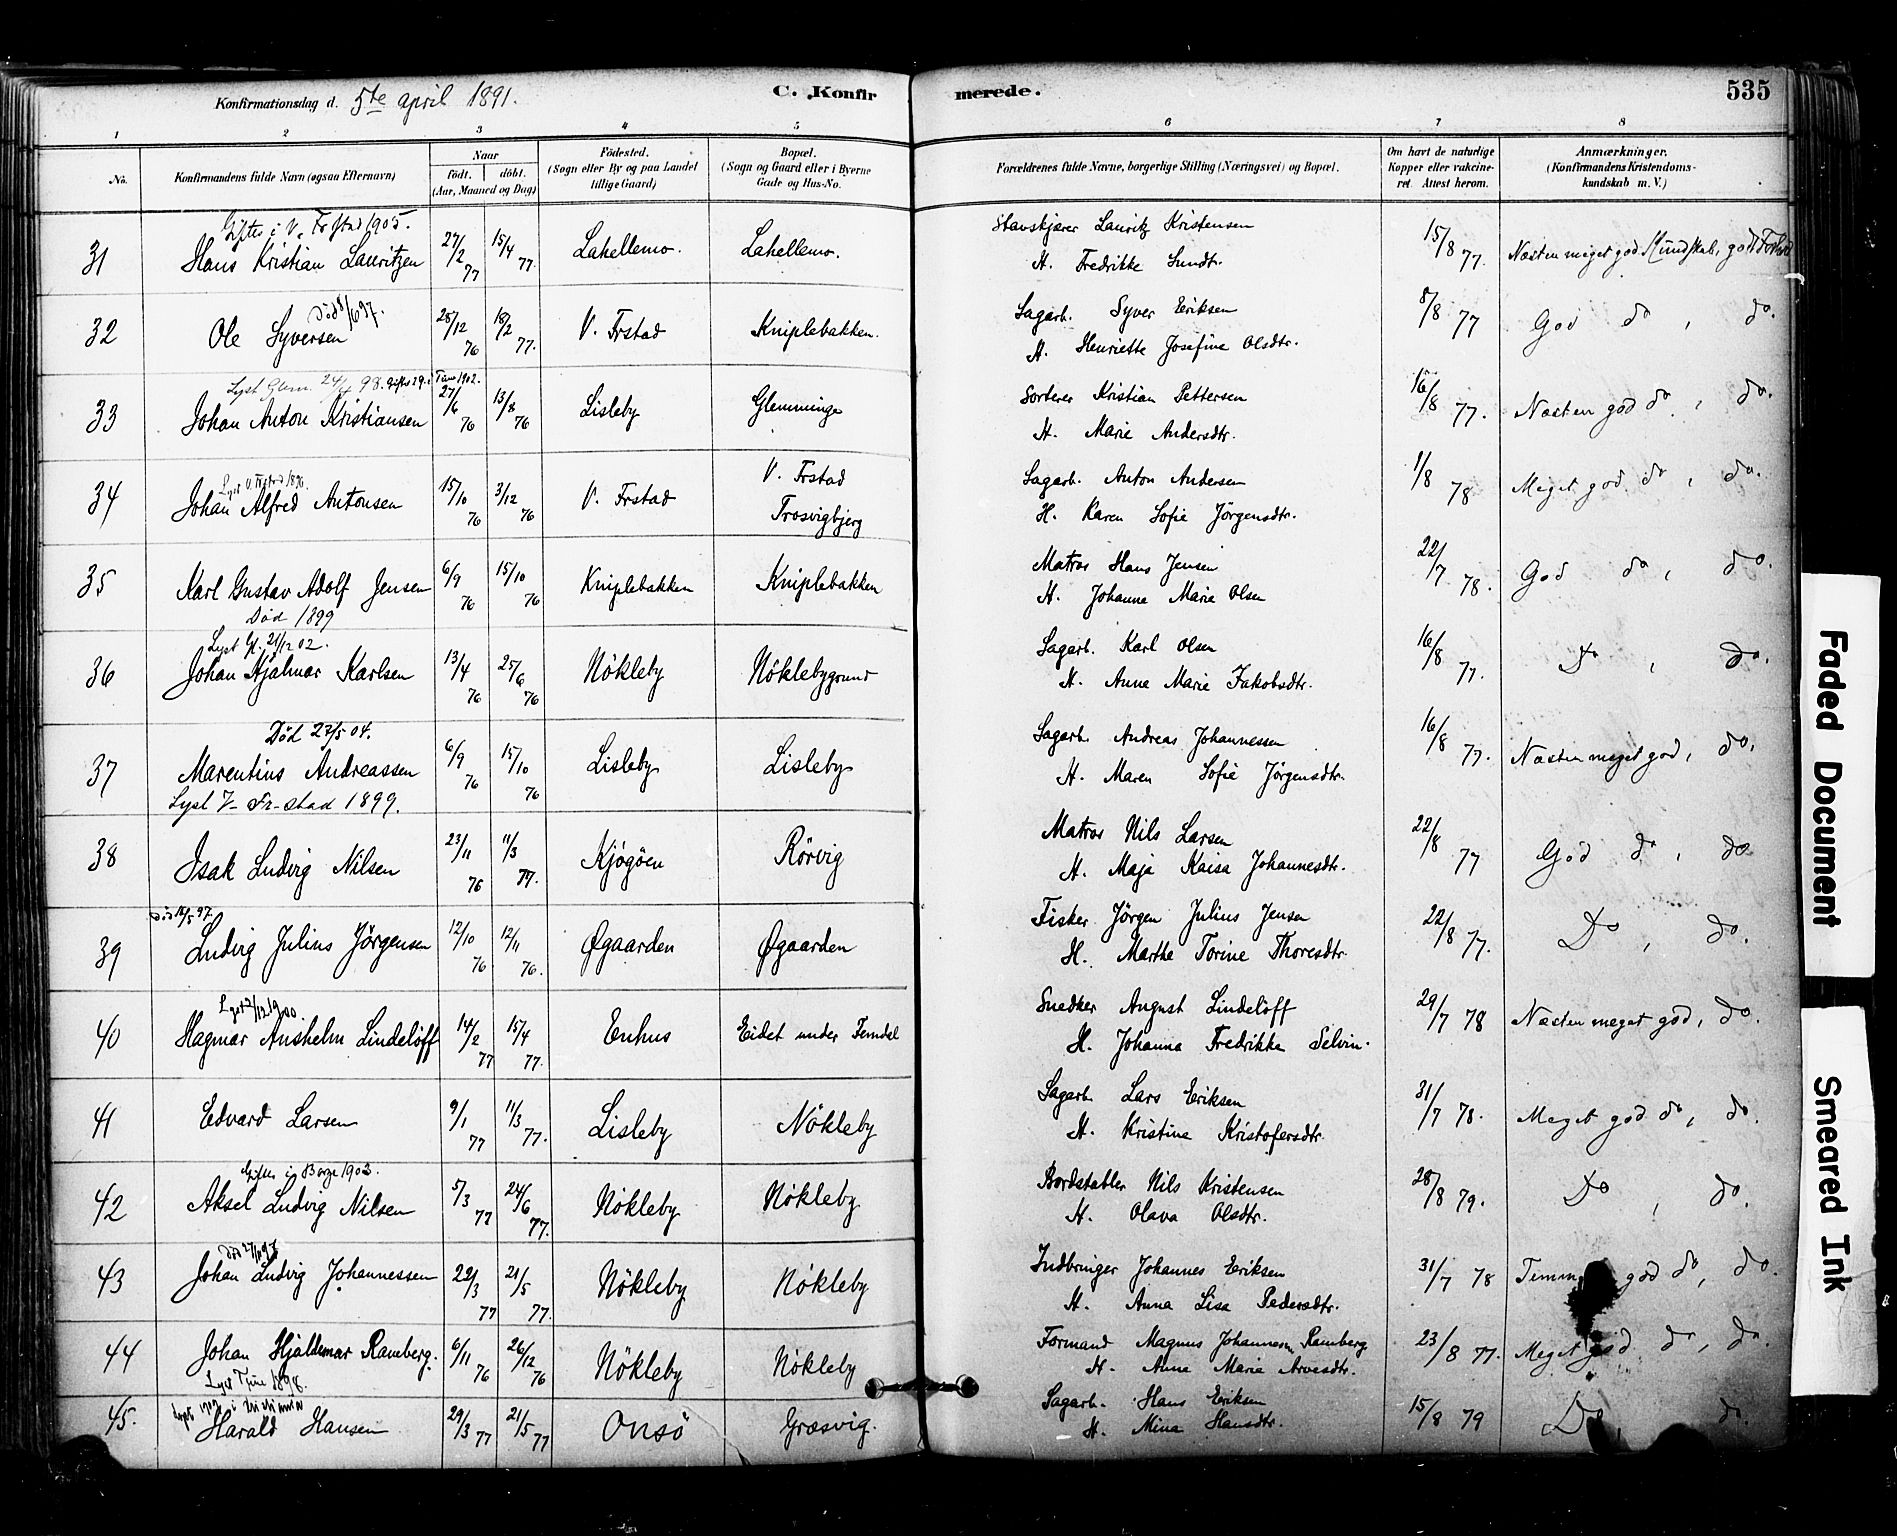 Konfirmationsdag d. 5te april 1891. C. Konfirmerede. 535
1 2 3 4 5 6 7 8
No. Konfirmandens fulde Navn (ogsaa Efternavn) Naar født. døbt. (Aar, Maaned og Dag) Födested. (Sogn eller By og paa Landet tillige Gaard) Bopæl. (Sogn og Gaard eller i Byerne Gade og Hus-No. Forældrenes fulde Navne, borgerlige Stilling (Næringsvei) og Bopæl. Om havt de naturlige Kopper eller vakcineret. Attest herom. Anmærkninger. (Konfirmandens Kristendomskundskab m. V.)
Giftes i V. Frstad 1905.
31 Hans Kristian Lauritzen 27/2 77 15/4 77. Lahellemo. Lahellemo. Lauritz Kristensen 15/8 77. Næsten meget god Kundskab, god Forhold
H. Fredrikke Lundt.
Död 8/6 97.
32 Ole Syversen 28/12 76 18/2 77. V. Frstad Kniplebakken. Sagarb. Syver Eriksen 8/8 77 God do, do.
H. Henriette Josefine Olsdtr.
Lyst Glem. 24/4 98. Giftes 29. i Tune 1902.
33 Johan Anton Kristiansen 27/6 76 13/8 76 Lisleby Glemminge Sorterer Kristian Pettersen 16/8 77. Næsten god do, do.
H. Marie Andersdtr.
Lyst V. Frstad 1896.
34 Johan Alfred Antonsen 15/10 76 3/12 76 V. Frstad V. Frstad Trosvigbjerg Sagarb. Anton Andersen 1/8 78 Meget god do, do.
H. Karen Sofie Jörgensdtr.
35 Karl Gustav Adolf Jensen 6/9 76 15/10 76 Kniplebakken Kniplebakken Matros Hans Jensen 22/7 78. God do, do.
Död 1899 H. Johanne Marie Olsen
Lyst Gl. 21/12 02.
36 Johan Hjalmar Karlsen 13/4 76 25/6 76 Nökleby Nöklebygrund Sagarb. Karl Olsen 16/8 77. Do, do.
H. Anne Marie Jakobsdtr.
Död 27/5 04.
37 Marentius Andreassen 6/9 76 15/10 76 Lisleby Lisleby Sagarb. Andreas Johannessen 16/8 77. Næsten meget god, do.
Lyst V- Fr-stad 1899. H. Maren Sofie Jörgensdtr.
38 Isak Ludvig Nilsen 23/11 76 11/3 77. Kjögöen Rörvig Matros Nils Larsen 22/8 77 God do, do
H. Maja Kaisa Johannesdtr.
Död 18/5 97.
39 Ludvig Julius Jörgensen 12/10 76 12/11 76. Øgaarden Øgaarden Fisker Jörgen Julius Jensen 22/8 77. Do, do.
H. Marthe Torine Thoresdtr.
Lyst 2/12 1900.
40 Hagmar Anshelm Lindelöff 14/2 77 15/4 77. Enhus Eidet under Femdal Snedker August Lindelöff 29/7 78 Næsten meget god, do.
H. Johanna Fredrikke Selvin.
41 Edvard Larsen 9/1 77 11/3 77. Lisleby Nökleby Sagarb. Lars Eriksen 31/7 78. Meget god do, do.
H. Kristine Kristofersdtr.
Giftes i Borge 1903.
42 Aksel Ludvig Nilsen 5/3 77 24/6 77. Nökleby Nökleby Bordstabler Nils Kristensen 28/8 79. Do, do.
H. Olava Olsdtr.
43 Johan Ludvig Johannessen 22/3 77 21/5 77. Nökleby Nökleby Indbringer Johannes Eriksen 31/7 78 god do, do.
H. Anna Lisa Pedersdtr.
44 Johan Hjaldemar Ramberg. 6/11 76 26/12 76 Nökleby Nökleby Formand Magnus Johannesen Ramberg 23/8 77. Meget god do, do.
Lyst Tune 1898. H. Anne Marie Arvesdtr.
45. Harald Hansen 29/3 77 21/5 77 Onsö Græsvig. Sagarb. Hans Eriksen 15/8 79 Do, do.
H. Mina Hansdtr.
Faded Document
Smeared Ink